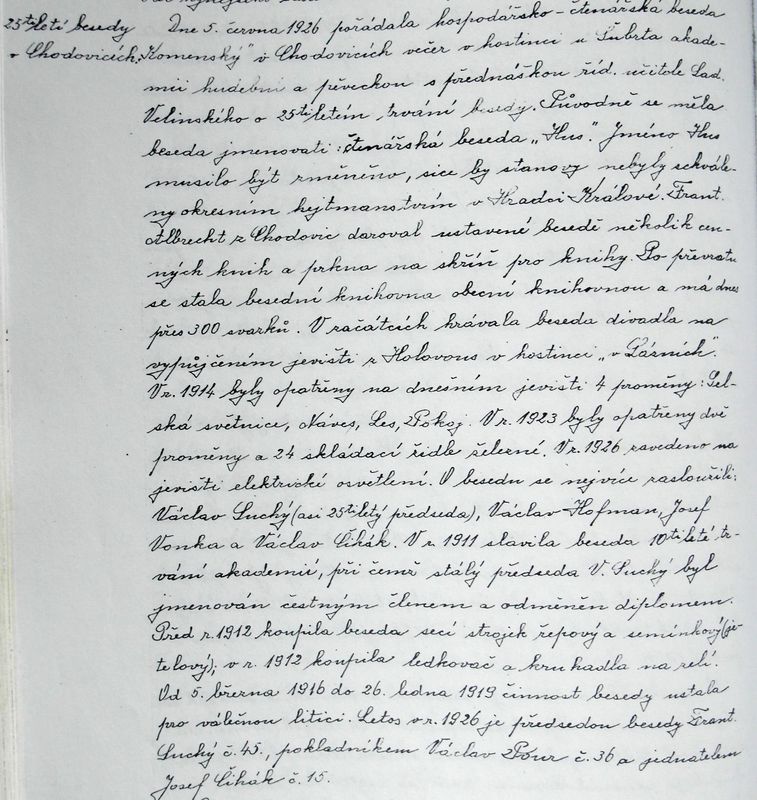 25tiletí besedy
v Chodovicích.
Dne 5. června 1926 pořádala hospodářsko-čtenářská beseda
„Komenský“ v Chodovicích večer v hostinci u Šubrta akade-
mii hudební a pěveckou s přednáškou říd. učitele Lad.
Velinského o 25tiletém trvání besedy. Původně se měla
beseda jmenovati: čtenářská beseda „Hus“. Jméno Hus
musilo být změněno, sice by stanovy nebyly schvále-
ny okresním hejtmanstvím v Hradci-Králové. Frant.
Albrecht z Chodovic daroval ustavené besedě několik cen-
ných knih a prkna na skříň pro knihy. Po převratu
se stala besední knihovna obecní knihovnou a má dnes
přes 300 svazků. V začátcích hrávala beseda divadla na
vypůjčeném jevišti z Holovous v hostinci „v Lázních“.
V r. 1914 byly opatřeny na dnešním jevišti 4 proměny: Sel-
ská světnice, Náves, Les, Pokoj. V r. 1923 byly opatřeny dvě
proměny a 24 skládací židle železné. V r. 1926 zavedeno na
jevišti elektrické osvětlení. O besedu se nejvíce zasloužili:
Václav Suchý (asi 25tiletý předseda), Václav Hofman, Josef
Vonka a Václav Čihák. V r. 1911 slavila beseda 10tileté tr-
vání akademií, při čemž stálý předseda V. Suchý byl
jmenován čestným členem a odměněn diplomem.
Před r. 1912 koupila beseda secí strojek řepový a semínkový (je-
telový); v r. 1912 koupila ledkovač a kruhadla na zelí.
Od 5. března 1916 do 26. ledna 1919 činnost besedy ustala
pro válečnou litici. Letos v r. 1926 je předsedou besedy Frant.
Suchý č. 45., pokladníkem Václav Pour č. 36 a jednatelem
Josef Čihák č. 15.